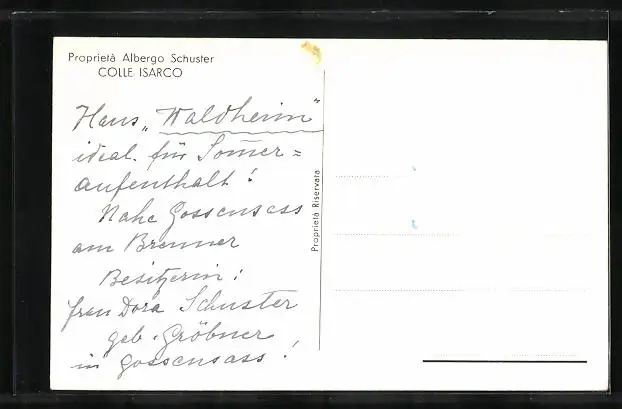 Proprietà Albergo Schuster
COLLE ISARCO
Haus „Waldheim“
ideal. für Som̅er=
aufenthalt!
Nahe Gossensass
am Brenner
Besitzerin:
Frau Dora Schuster
geb. Gröbner
in Gossensass!
Proprietà Riservata